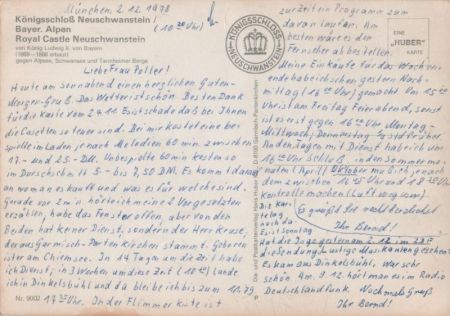 München, 2.12.1978
(10 20 Uhr)
Königsschloß Neuschwanstein
Bayer. Alpen
Royal Castle Neuschwanstein
von König Ludwig II. von Bayern
(1869–1886 erbaut)
gegen Alpsee, Schwansee und Tannheimer Berge
Liebe Frau Poller!
Heute am sonnabend einen herzlichen Guten-
Morgen-Gruß. Das Wetter ist schön. Besten Dank
für die Karte vom 2.11 Es ist schade daß bei Ihnen
die Casetten so teuer sind. Bei mir kostet eine be-
spielte im Laden je nach Melodien 60 min. zwischen
17.- und 25.- DM. Unbespielte 60 min kosten so
im Dorschschn tt 5.- bis 7,50 DM. Es kommt darauf
an wo man es kauft und was es für welche sind.
Gerade vor 2 min. hörte ich meine 2 Vorgesetzten
erzählen, habe das Fenster offen, aber von den
Beiden hat keiner Dienst, sondern Herr Keuse,
der aus Garmisch-Partenkirchen stammt. Geboren
ist er am Chiemsee. In 14 Tagen um die Zeit habe
ich Dienst; in 3 Wochen um diese Zeit (10 20) lande
ich in Dinkelsbühl und da bleibe ich bis zum 1.1.79
17 35 Uhr. In der Flimmerkiste ist
Nr. 9002
KÖNIGSSCHLOSS
NEUSCHWANSTEIN
EINE
„HUBER"
KARTE
zur Zeit ein Programm zum
davonlaufen. Am
besten wäre es der
Fernseher abbestellen.
Meine Einkäufe für das Wochen-
ende habe ich schon gestern Nach-
mittag 16 00 Uhr gemacht. Um 15 45
Uhr ist am Freitag Feierabend, sonst
ist es erst gegen 16 30 Uhr Montag -
Mittwoch, Donnerstag
An den Tagen mit Dienst habe ich um
16 00 Uhr Schluß, in den sommermo-
naten (April/Oktober muß ich je nach
dem zwischen 16 45 Uhr und 18 00 Uhr
Kontrolle machen. Luft was zum
Es grüßt Sie recht herzlichst
Ihr Bernd!
gestern am 2.12. im ZDF
die Sendung Lustige Musikanten gesehen?
Es kam aus Dinkelsbühl, War sehr
schön Am 9.12 hört man es im Radio
Deutschlandfunk. Nochmals Gruß
Ihr Bernd!